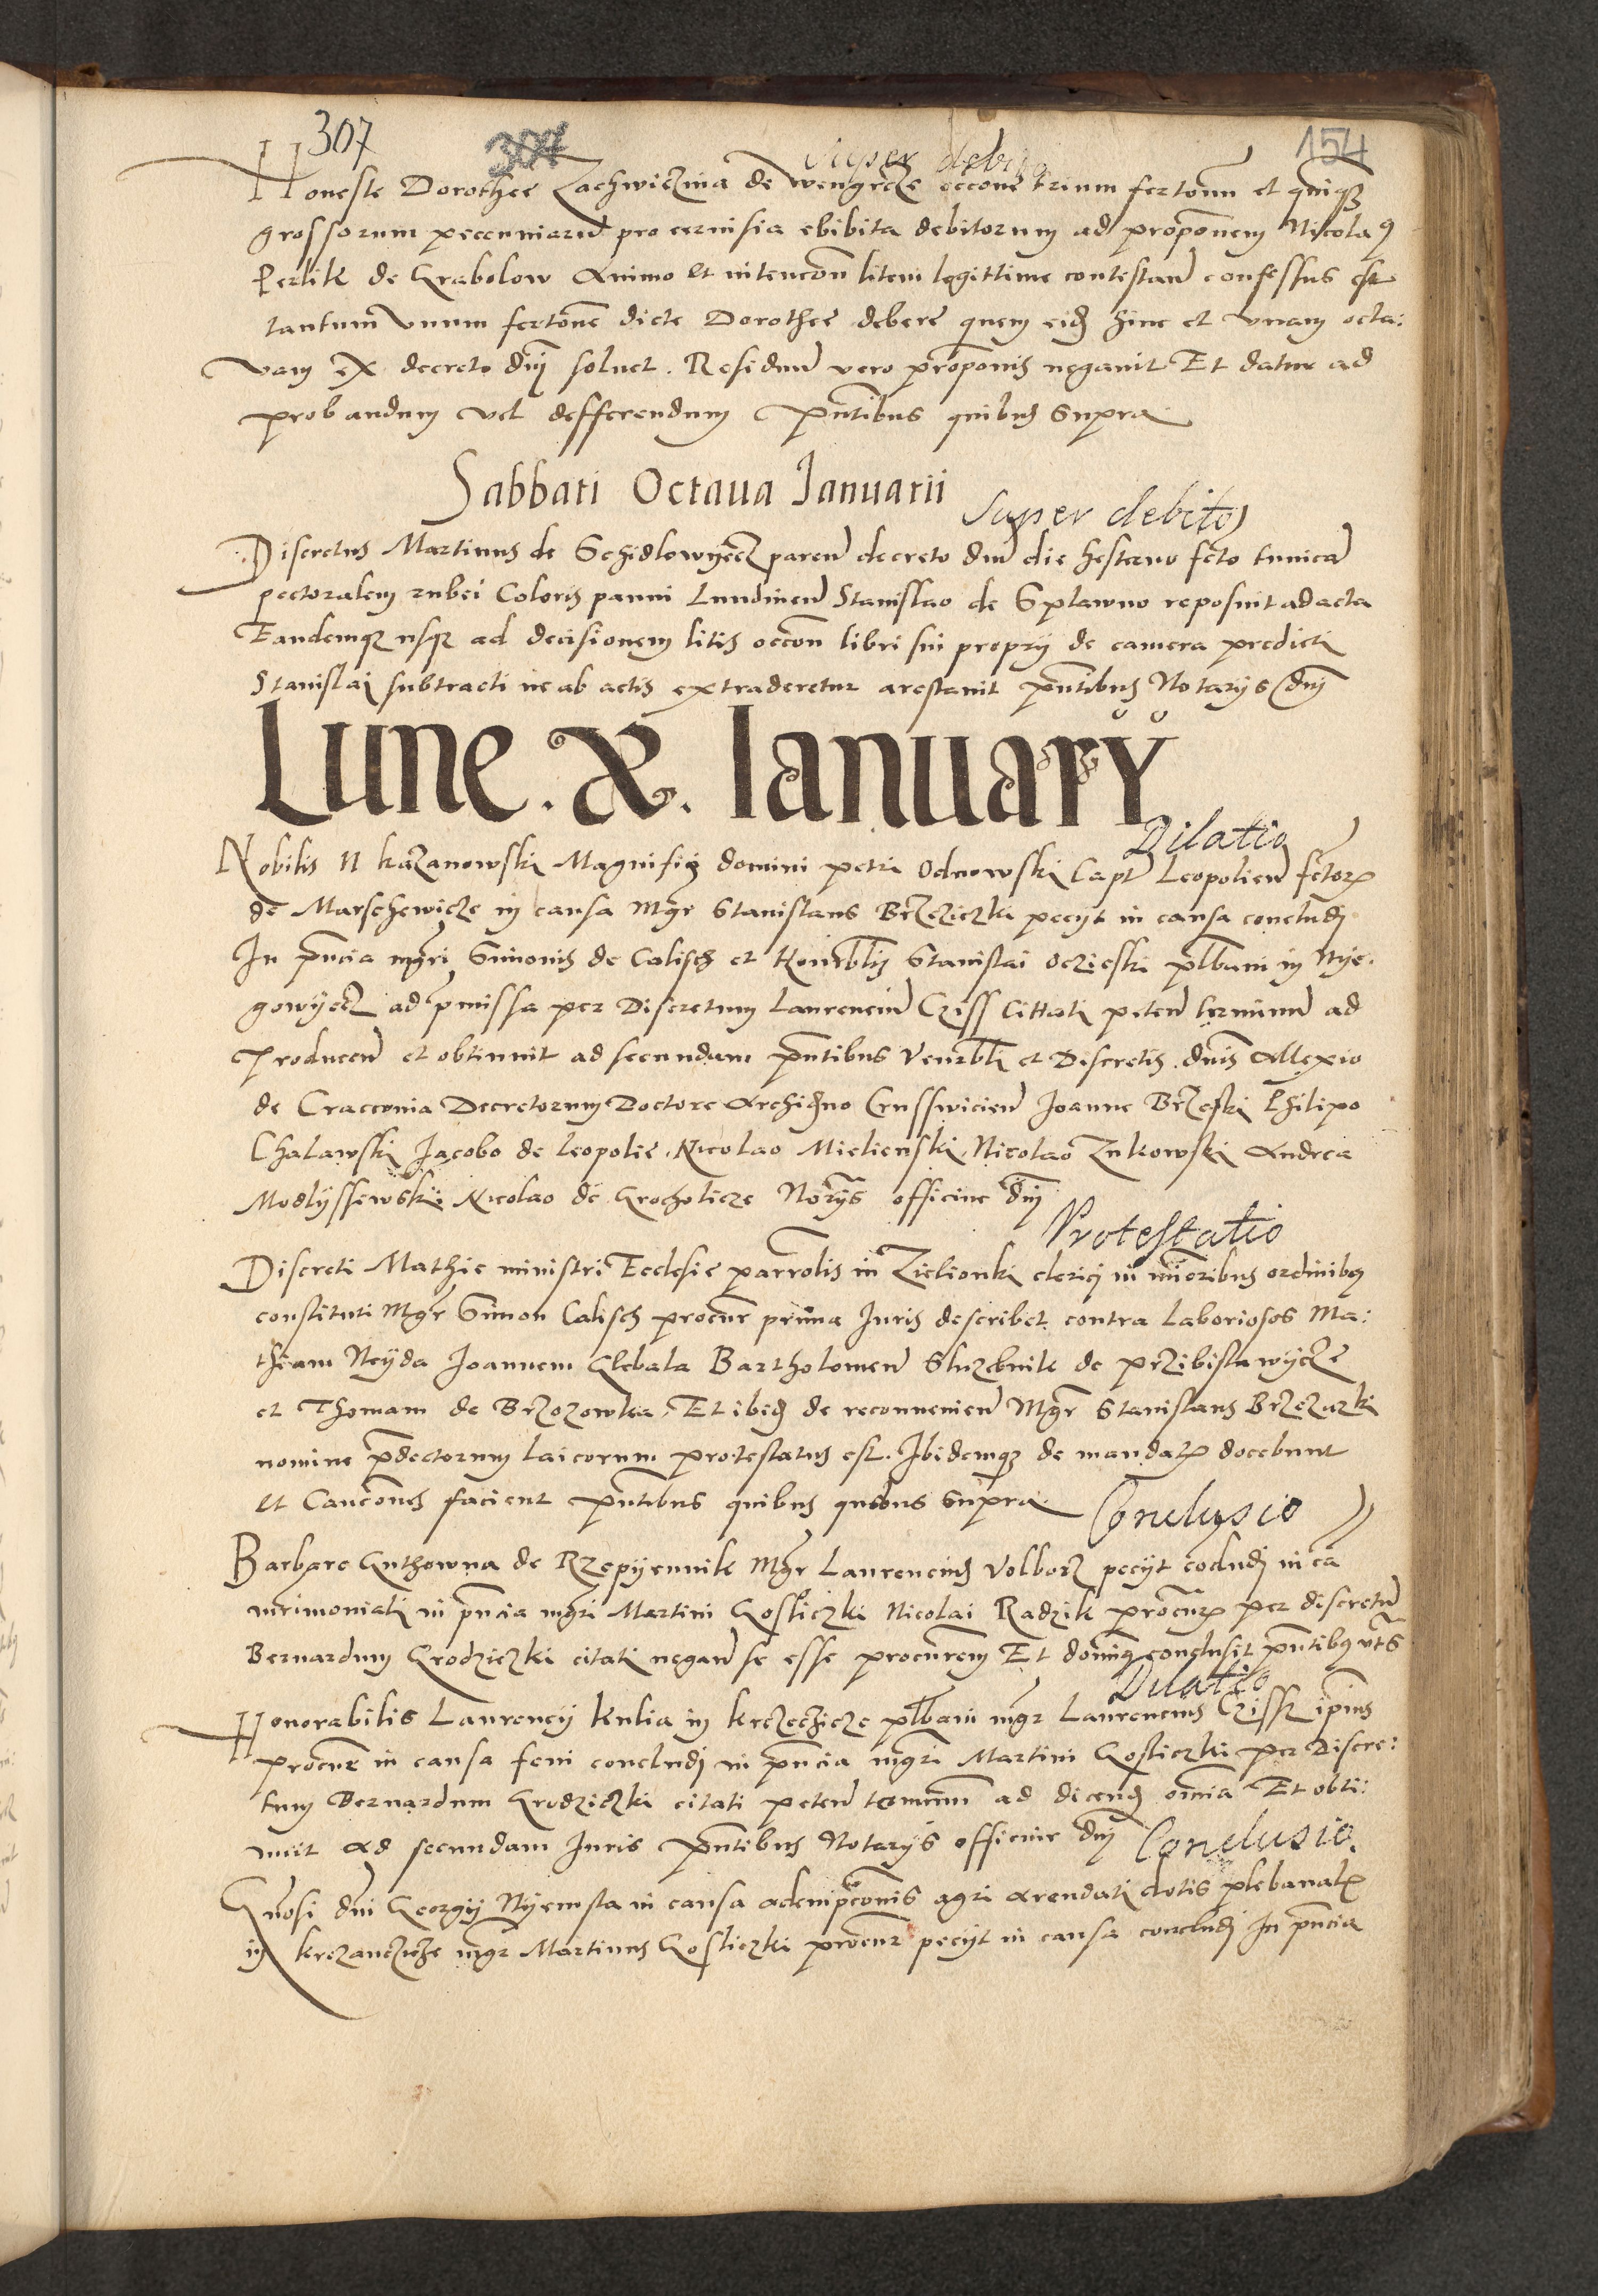 307 304 154
Super debito
Honeste Dorothee Zachwiczina de Wengrcze occone trium fertonu et quinq3
grossorum pecuniaru pro cervisia ebibita debitorum ad proponem Nicola9
Perlik de Grabolow Animo et intencon litem legittime contestan confessus est
tantum Unum fertone dicte Dorothee debere quem eid hinc et unam octa:
vam ex decreto dni soluet. Residuu vero proponis negavit Et datur ad
probandum vel defferendum pntibus quibus supra
Sabbati Octaua Ianuarii
Super debito
Discretus Martinus de Schidlowyecz paren decreto dni die hesterno fcto tunica
pectoralem rubei Coloris panni Lundinen Stanislao de Splawno reposuit ad acta
Eandemq3 usq3 ad decisionem litis occon libri sui proprij de camera predicti
Stanislai subtracti ne ab actis extraderetur arestavit pntibus Notarijs dni
Lune . X . Ianuarÿ
Dilatio
Nobilis N Kazanowski Magnifici domini Petri Odnowski Capt Leopolien fctor
de Marschewicze in causa Mgr Stanislaus Brzeziczki peciit in causa concludi
In pncia mgri Simonis de Calisch et honrblis Stanislai Oczieski plbani in Nye-
gowyecz ad pmissa per Discretum Laurenciu Cziss Cittati peten terminu ad
producen et obtinuit ad secundam pntibus Venrbli et Discretis dnis Allexio
de Cracovia Decretorum Doctore Archidno Crusswicien Joanne Brzeski Philipo
Chalawski Jacobo de Leopolie Nicolao Mielienski Nicolao Zukowski Andrea
Modlyssewski Nicolao de Grocholicze Norijs officine dni
Protestatio
Discreti Mathie ministri Ecclesie parrolis in Zielionki clerici in mioribus ordinibq
constituti Mgr Simon Calisch procur prima Juris describet contra Laboriosos Ma:
thiam Neyda Joannem Glebala Bartholomeu Sluzebnik de Przibislawycze
et Thomam de Brzozowka. Et ibid de reconvenien Mgr Stanislaus Brzeziczki
nomine pdictorum laicorum protestatus est. Ibidemq3 de mandatis docebunt
et Caucones facient pntibus quibus quibus supra
Conclusio
Barbare Guthowna de Rzepyennik Mgr Laurencius Volborz peciit cocludi in ca
mrimoniali in pncia mgri Martini Gosliczki Nicolai Radzik procuris per discretu
Bernardum Grodziczki citati negan se esse procurem Et doming conclusit pntibq uts
Dilatio
Honorabilis Laurency Kulia in Krczecziecze plbani mgr Laurencius Cziss ipius
procur in causa feni concludi in pncia mgri Martini Gosliczki per Discre:
tum Bernardum Grodziczki citati peten terminum ad dicend omia Et obti:
nuit ad secundam Juris pntibus Notarijs officine dni
Conclusio
Gnosi dni Georgij Nyemsta in causa adempcionis agri arendati dotis plebanalis
in Krczanczicze mgr Martinus Gosliczki procur peciit in causa concludi In pncia